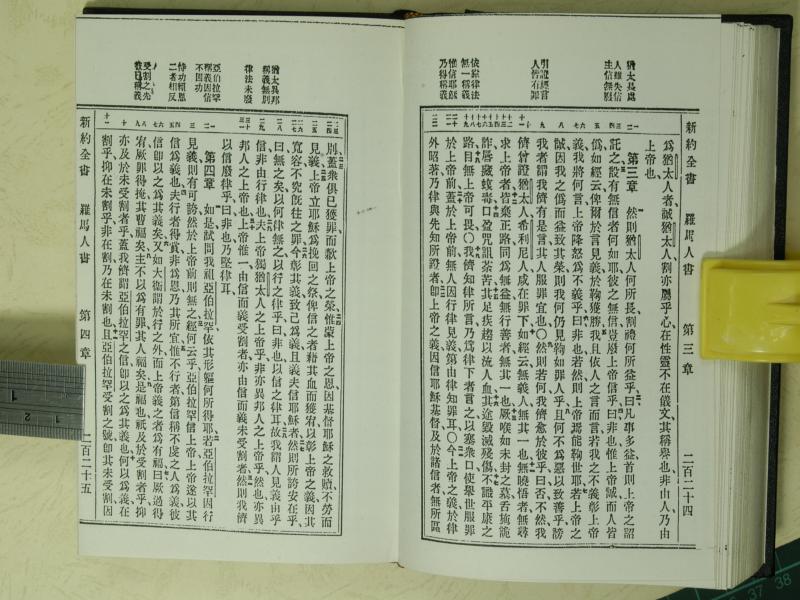 新約全書 羅馬人書 第三章 二百二十四
猶太長處
人雖失信
主信無廢
引證經言
人皆有罪
依賴律法
無一稱義
惟信耶穌
乃得稱義
爲猶太人者誠猶太人割亦屬乎心在性靈不在儀文其稱譽也非由人乃由
上帝也
第三章 然則猶太人何所長割禮何所益乎曰凡事多益首則上帝之詔
託之設有無信者何如耶彼之無信豈廢上帝信乎曰非也惟上帝誠而人皆
僞如經云俾爾於言見義於鞫獲勝我且依人之言而言若我之不義彰上帝
義我將何言上帝降怒爲不義乎曰非也若然則上帝曷能鞫世耶若上帝之
誠因我之僞而益致其榮則我何仍見鞫如罪人乎且何不爲惡以致善乎謗
我者謂我儕有是言其人服罪宜也〇然則若何我儕愈於彼乎曰否不然我
儕曾證猶太人希利尼人咸在罪下如經云無義人無其一也無曉悟者無尋
求上帝者皆棄正路同爲無益無行善者無其一也厥喉如未封之墓舌施詭
詐唇藏蝮毒口盈咒詛荼苦其足疾趨以流人血其途毀滅殘傷不識平康之
路目無上帝可畏〇我儕知律所言乃爲律下者言之以塞衆口使舉世服罪
於上帝前蓋於上帝前無人因行律見義第由律知罪耳〇今上帝之義於律
外昭著乃律與先知所證者卽上帝之義因信耶穌基督及於諸信者無所區
猶太異邦
稱義無別
律法未廢
亞伯拉罕
稱義因信
不因功
恃功賴恩
二者相反
受割之先
旣已稱義
則蓋衆俱已獲罪而歉上帝之榮惟蒙上帝之恩因基督耶穌之救贖不勞而
見義上帝立耶穌爲挽回之祭俾信之者藉其血而獲宥以彰上帝之義因其
寬容不究旣往之罪今彰其義致己爲義且義夫信耶穌者然則所誇安在乎
曰無之矣以何律無之以行之律乎曰非也以信之律耳故我謂人見義由乎
信非由行律也夫上帝獨猶太人之上帝乎非亦異邦人之上帝乎然也亦異
邦人之上帝也上帝惟一由信而義受割者亦由信而義未受割者然則我儕
以信廢律乎曰非也乃堅律耳
第四章 如是試問我祖亞伯拉罕依其形軀何所得耶若亞伯拉罕因行
見義則有可誇然於上帝前則無之經何云乎亞伯拉罕信上帝上帝遂以其
信爲義也夫行者得賞非爲恩乃其所宜惟不行者第信稱不虔之人爲義彼
信卽以之爲其義矣又如大衞謂於行之外而上帝義之者爲有福曰厥過得
宥厥罪得掩其人福矣主不以爲有罪其人福矣是福也祇及於受割者乎抑
亦及於未受割者乎蓋我儕謂亞伯拉罕之信卽以之爲其義也何以爲義在
割乎抑在未割乎非在割乃在未割也且亞伯拉罕受割之號卽其未受割因
新約全書 羅馬人書 第四章 二百二十五
1
2
37 38